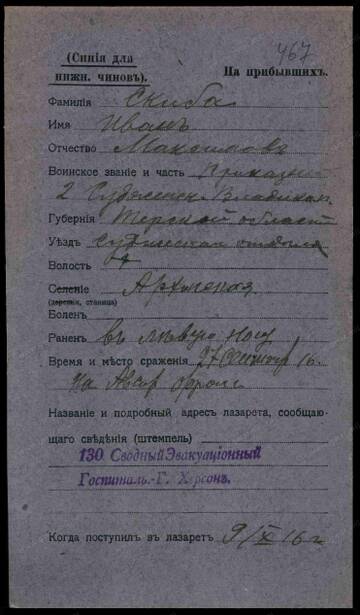 467
(Синія для
нижн. чиновъ).
На прибывшихъ.
Фамилія Скиба
Имя Иванъ
Отчество Максимовъ
Воинское званіе и часть Приказный
2 Сунженск. Владикав.
Губернія Терской области
Уѣздъ Сунженскаго отдѣла
Волость
Селеніе
(деревня, станица)
Боленъ
Раненъ въ лѣвую ногу
Время и мѣсто сраженія 27 Сентября 16 г.
На
Названіе и подробный адресъ лазарета, сообщаю-
щаго свѣдѣнія (штемпель)
130 Сводный Эвакуаціонный
Госпиталь.-Г. Херсонъ.
Когда поступилъ въ лазаретъ 9/X 16 г